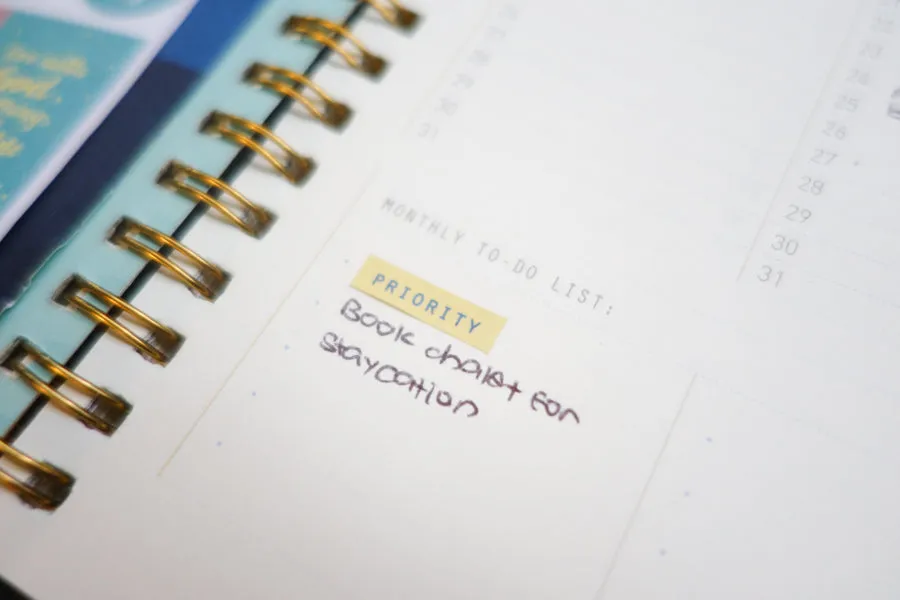 29
30
31
MONTHLY TO-DO LIST:
PRIORITY
Book chalet for
staycation
23
24
25
26
27
28
29
30
31